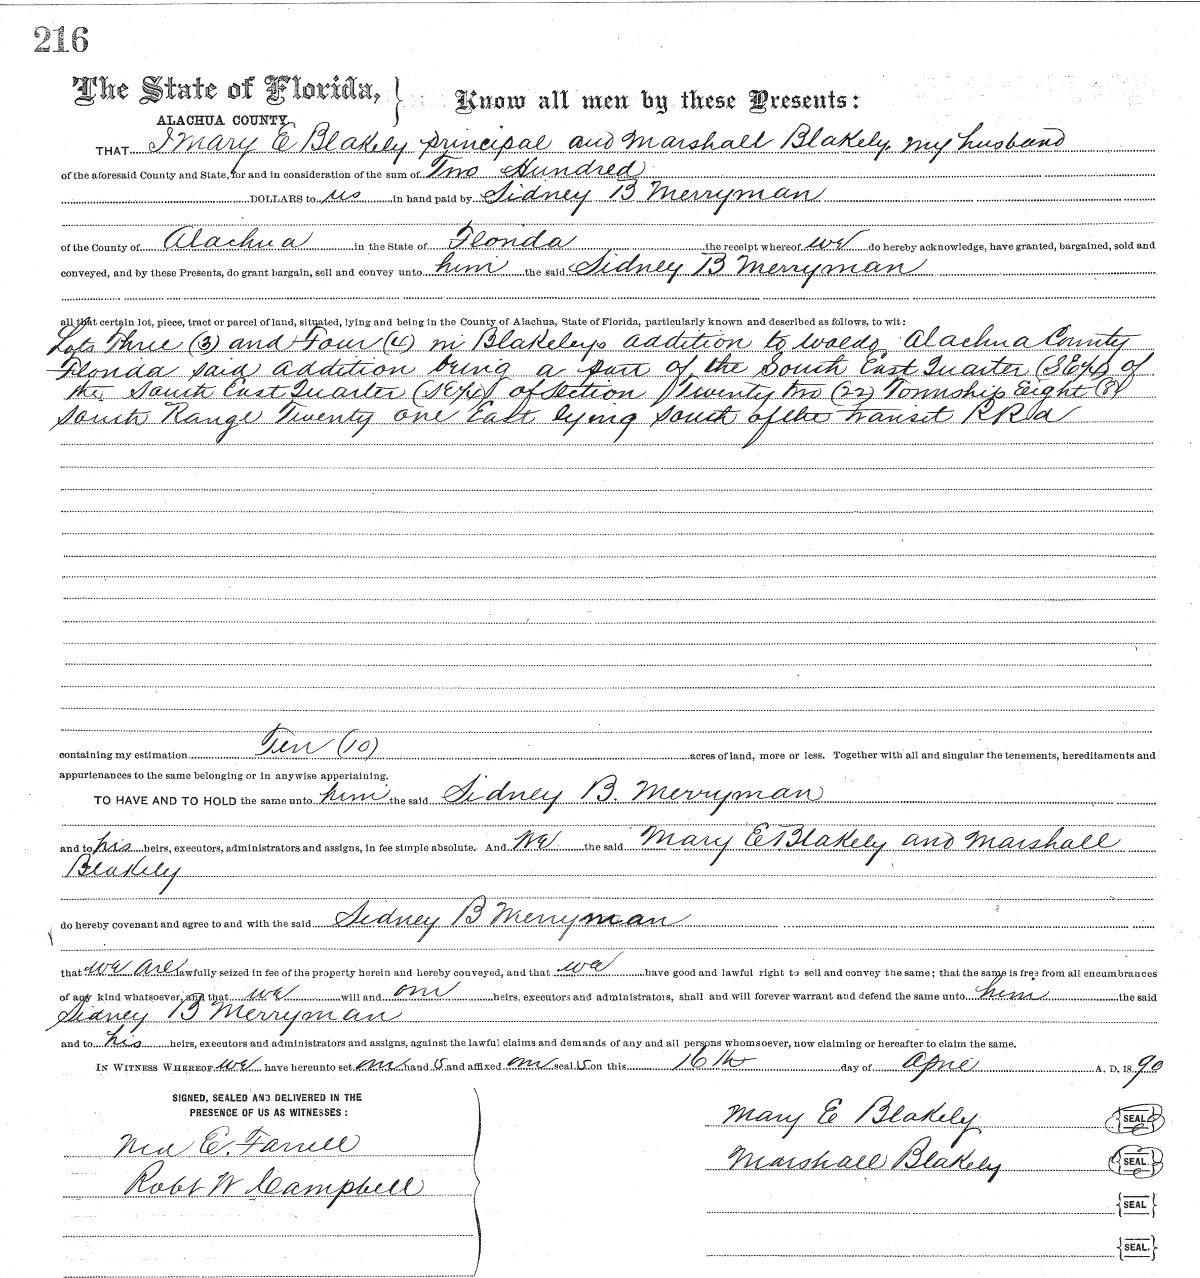 216
The State of Florida, } Know all men by these Presents:
ALACHUA COUNTY.
THAT I Mary E Blakely principal and Marshall Blakely my husband
of the aforesaid County and State, for and in consideration of the sum of Two Hundred
DOLLARS to us in hand paid by Sidney B Merryman
of the County of Alachua in the State of Florida the receipt whereof we do hereby acknowledge, have granted, bargained, sold and
conveyed, and by these Presents, do grant bargain, sell and convey unto him the said Sidney B Merryman
all that certain lot, piece, tract or parcel of land, situated, lying and being in the County of Alachua, State of Florida, particularly known and described as follows, to wit:
Lots Three (3) and Four (4) in Blakeleys addition to Waldo, Alachua County
Florida said addition being a part of the South East Quarter (SE¼) of
the South East Quarter (SE¼) of Section Twenty two (22) Township Eight (8)
South Range Twenty one East lying south of the Transit R Rd
containing my estimation Ten (10) acres of land, more or less. Together with all and singular the tenements, hereditaments and
appurtenances to the same belonging or in anywise appertaining.
TO HAVE AND TO HOLD the same unto him the said Sidney B. Merryman
and to his heirs, executors, administrators and assigns, in fee simple absolute. And we the said Mary E Blakely and Marshall
Blakely
do hereby covenant and agree to and with the said Sidney B Merryman
that we are lawfully seized in fee of the property herein and hereby conveyed, and that we have good and lawful right to sell and convey the same; that the same is free from all encumbrances
of any kind whatsoever, and that we will and our heirs, executors and administrators, shall and will forever warrant and defend the same unto him the said
Sidney B Merryman
and to his heirs, executors and administrators and assigns, against the lawful claims and demands of any and all persons whomsoever, now claiming or hereafter to claim the same.
IN WITNESS WHEREOF we have hereunto set our hand s and affixed our seal s on this 16th day of April A, D. 18 90
SIGNED, SEALED AND DELIVERED IN THE
PRESENCE OF US AS WITNESSES:
Mary E Blakely {SEAL}
Ned E. Farrell
Marshall Blakely {SEAL.}
Robt W Campbell
{SEAL}
{SEAL.}